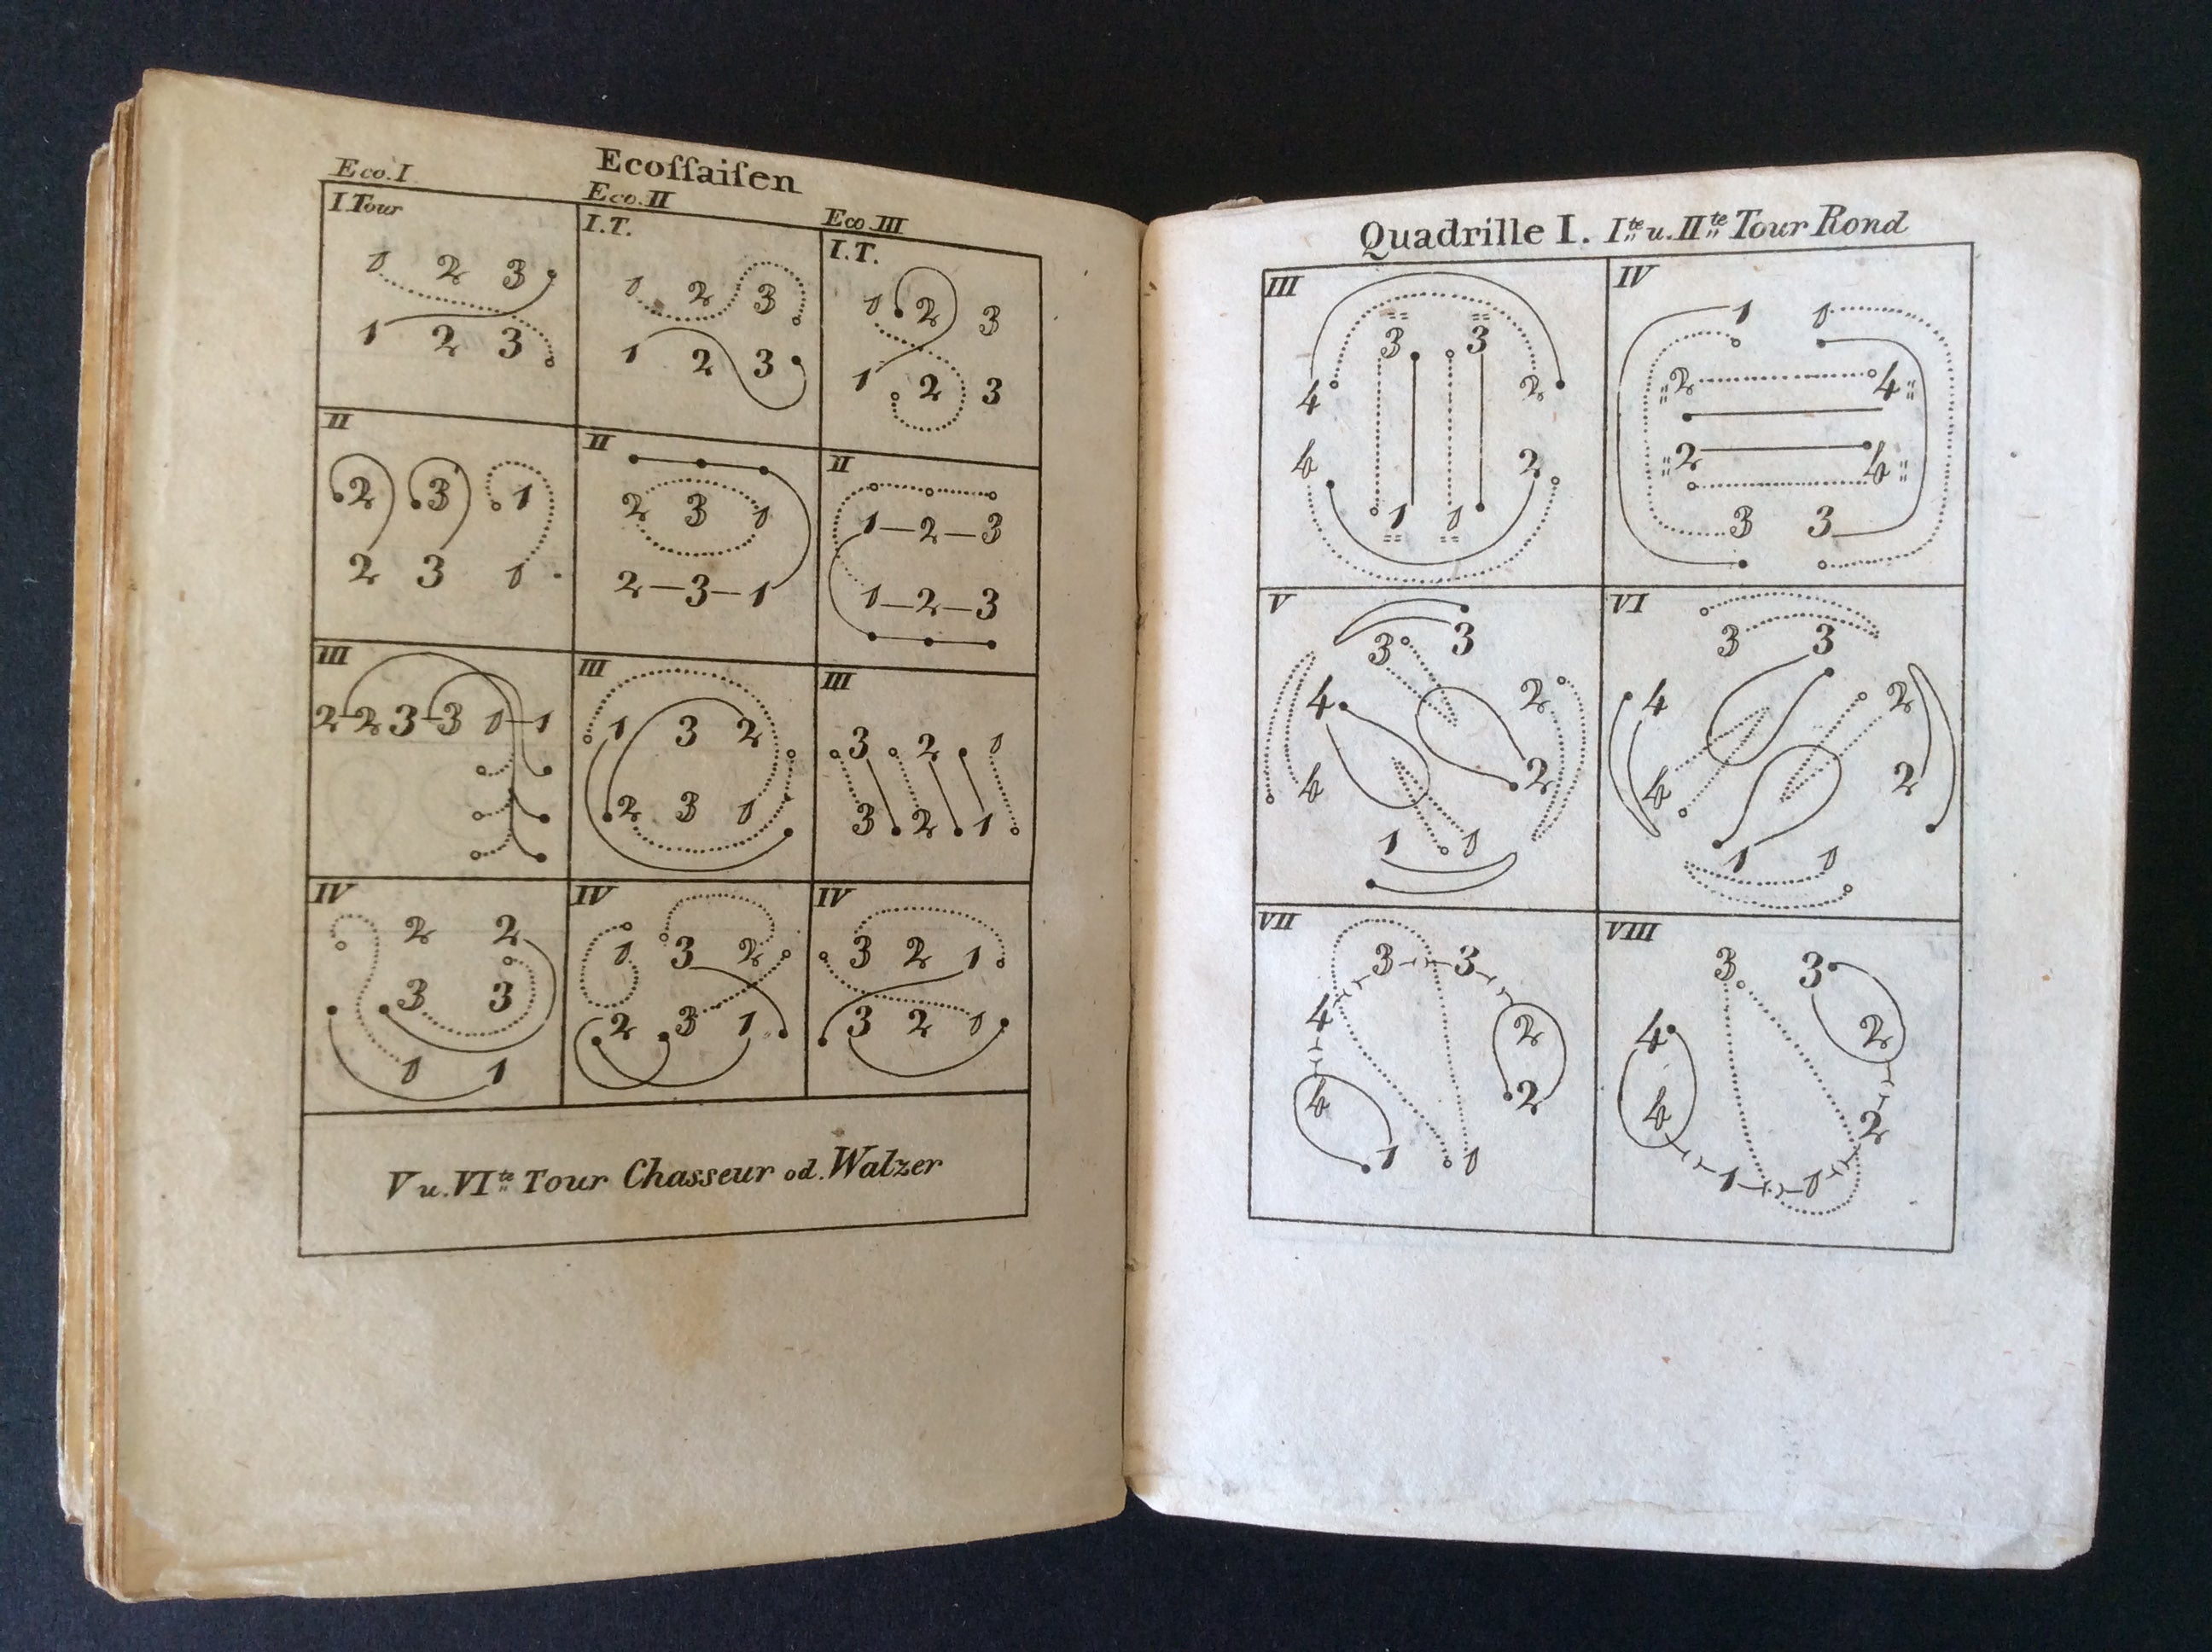 Ecoſſaiſen
Eco. I
Eco. II
Eco. III
I. Tour
I. T.
I. T.
1 2 3
1 2 3
1 2 3
1 2 3
1 2 3
1 2 3
II
II
II
2 3 1
2 3 1
2 3 1
2—3—1
1—2—3
1—2—3
III
III
III
2—2 3—3 1—1
1 3 2
2 3 1
3 2 1
3 2 1
IV
IV
IV
2 2
3 3
1 1
1 3 2
2 3 1
3 2 1
3 2 1
V u. VIte Tour Chasseur od. Walzer
Quadrille I. Ite u. IIte Tour Rond
III
3 3
4 2
4 2
1 1
IV
1 1
2 4
2 4
3 3
V
3 3
4 2
4 2
1 1
VI
3 3
4 2
4 2
1 1
VII
3 3
4 2
4 2
1 1
VIII
3 3
4 2
4 2
1 1